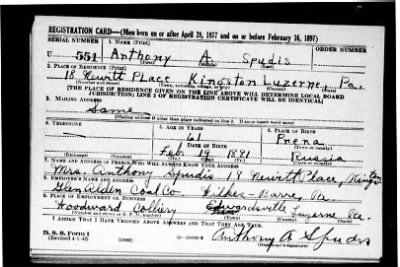 REGISTRATION CARD—(Men born on or after April 28, 1877 and on or before February 16, 1897)
SERIAL NUMBER 1. NAME (Print) ORDER NUMBER
U 551 Anthony A Spudis
2. PLACE OF RESIDENCE (Print)
18 Hewitt Place Kingston Luzerne Pa.
(Number and street) (Town, township, village, or city) (County) (State)
[THE PLACE OF RESIDENCE GIVEN ON THE LINE ABOVE WILL DETERMINE LOCAL BOARD
JURISDICTION; LINE 2 OF REGISTRATION CERTIFICATE WILL BE IDENTICAL]
3. MAILING ADDRESS
Same
[Mailing address if other than place indicated on line 2. If same insert word same]
4. TELEPHONE 5. AGE IN YEARS 6. PLACE OF BIRTH
61 Prena
DATE OF BIRTH
Feb 19 1881 Russia
7. NAME AND ADDRESS OF PERSON WHO WILL ALWAYS KNOW YOUR ADDRESS
Mrs. Anthony Spudis 18 Hewitt Place,
8. EMPLOYER'S NAME AND ADDRESS
Glen Alden Coal Co Wilkes-Barre, Pa.
9. PLACE OF EMPLOYMENT OR BUSINESS
Woodward Colliery Edwardsville Luzerne Pa.
I AFFIRM THAT I HAVE VERIFIED ABOVE ANSWERS AND THAT THEY ARE TRUE.
D. S. S. Form 1
(Revised 4-1-42) Anthony A Spudis